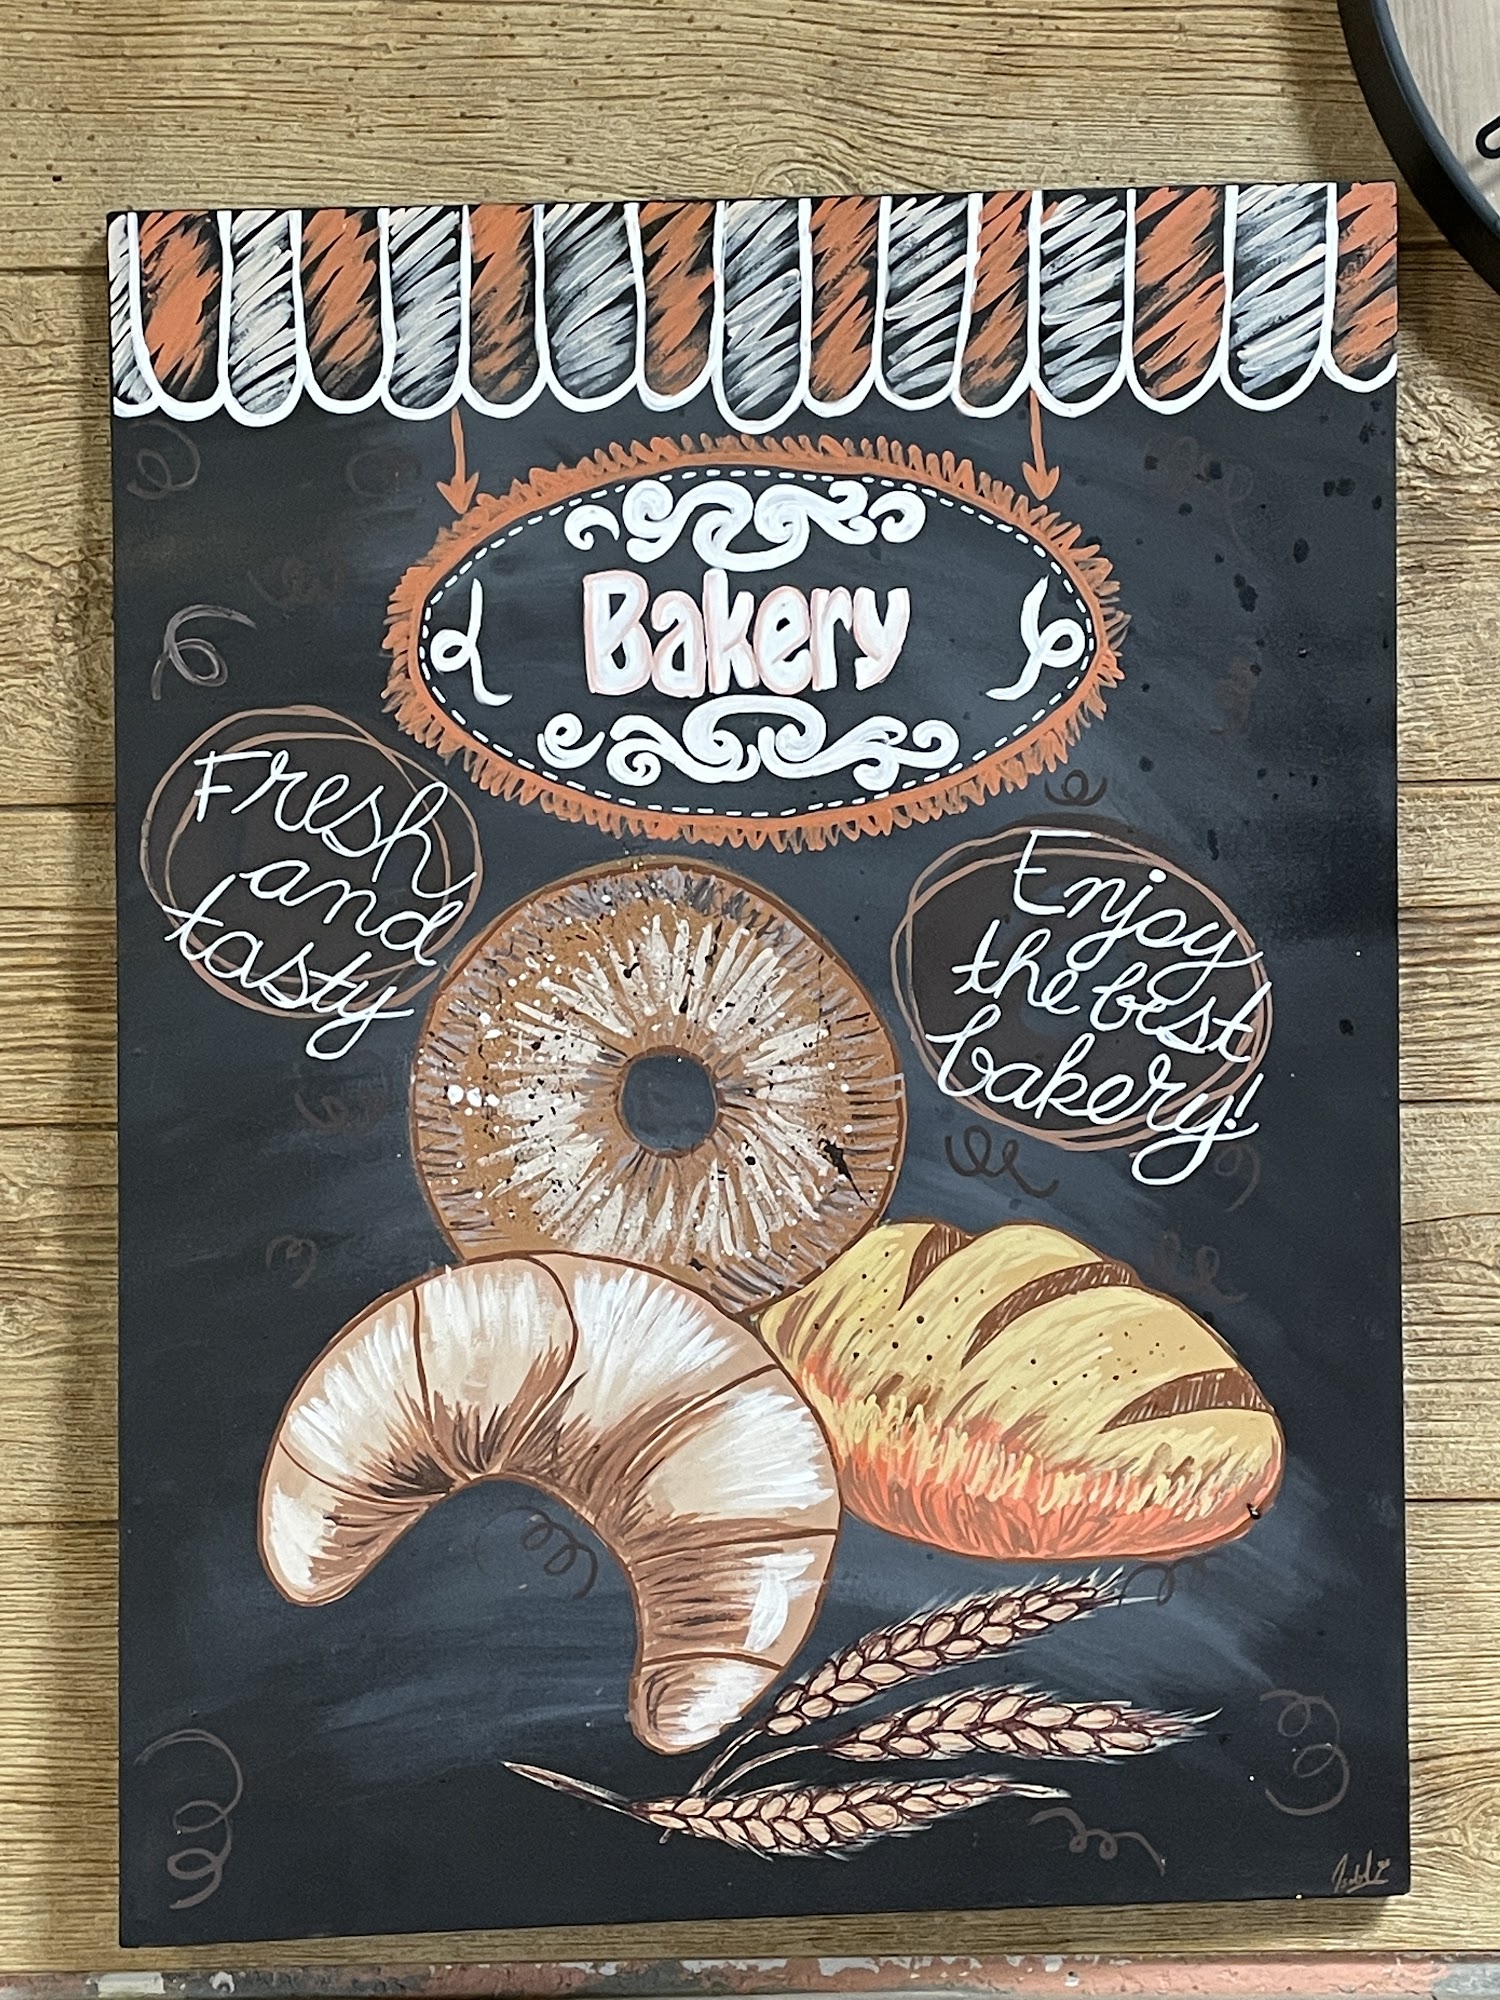 Bakery
Fresh
and
tasty
Enjoy
the best
bakery!